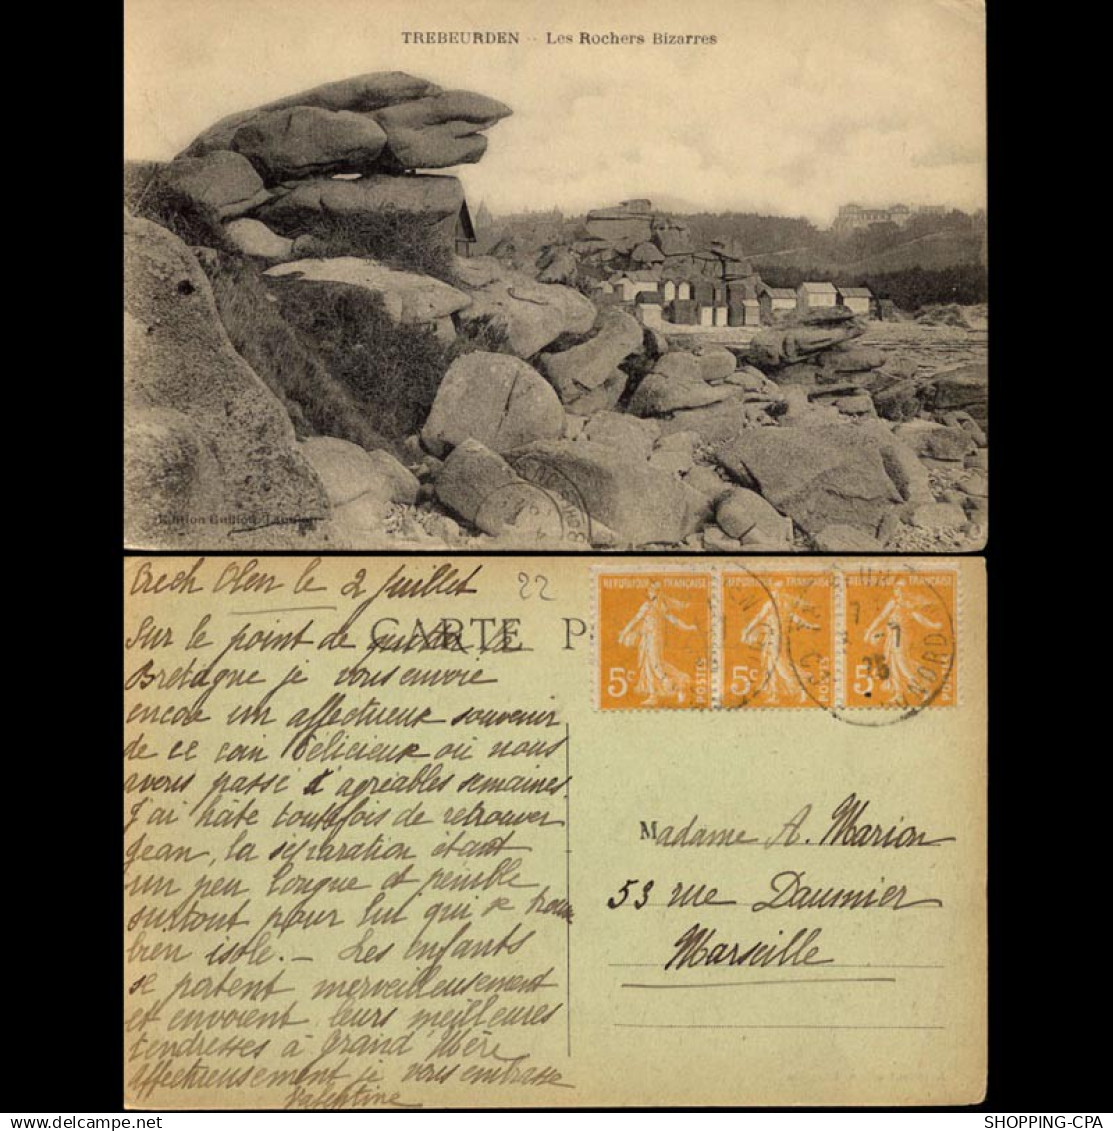 TREBEURDEN -- Les Rochers Bizarres
Edition Guillou, Lannion
Crech Olen le 2 juillet
22
Sur le point de quitter la
CARTE P
Bretagne je vous envoie
encore un affectueux souvenir
de ce coin délicieux où nous
avons passé d'agréables semaines.
J'ai hâte toutefois de retrouver
Jean, la séparation étant
un peu longue et pénible
surtout pour lui qui se trouve
bien isolé. — Les enfants
se portent merveilleusement
et envoient leurs meilleures
tendresses à Grand Mère
affectueusement je vous embrasse
Valentine
REPUBLIQUE FRANÇAISE REPUBLIQUE FRANÇAISE
5c POSTES 5c POSTES 5c
7 -7
25
NORD
Madame A. Marion
53 rue Daumier
Marseille
SHOPPING-CPA